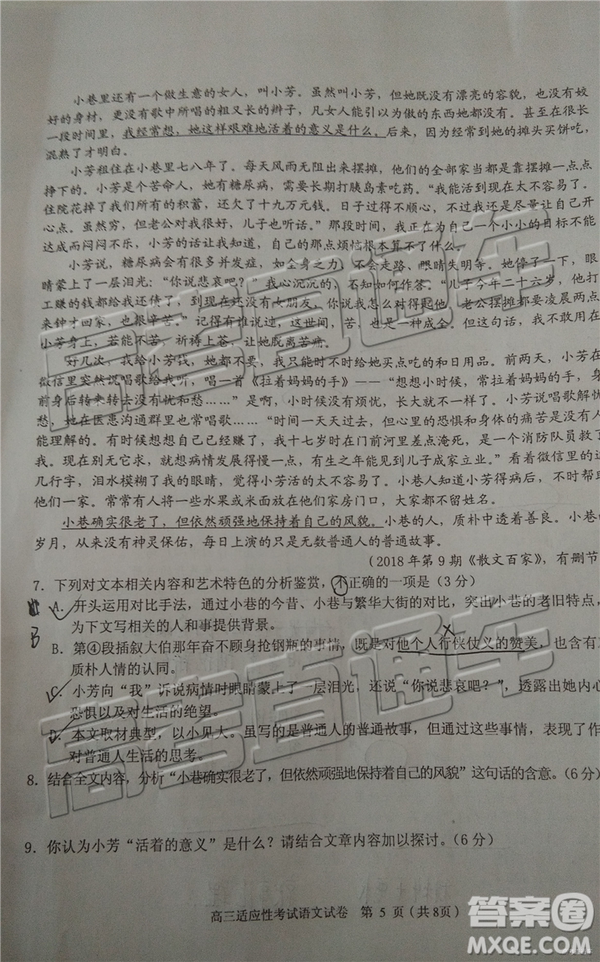 小巷里还有一个做生意的女人，叫小芳。虽然叫小芳，但她既没有漂亮的容貌，也没有姣
好的身材，更没有歌中所唱的粗又长的辫子，凡女人能引以为傲的东西她都没有。甚至在很长
一段时间里，我经常想，她这样艰难地活着的意义是什么。后来，因为常到她的摊头买饼吃，
混熟了才明白。
小芳租住在小巷里七八年了。每天风雨无阻出来摆摊，他们的全部家当就是靠摆摊一点点
挣下的。小芳是个苦命人，她有糖尿病，需要长期打胰岛素吃药。“我能活到现在太不容易了。
住院花掉了我们所有的积蓄，还欠了十九万元钱。日子过得不顺心，不过我还是尽量让自己开
心点。虽然穷，但老公对我很好，儿子也听话。”那段时间，我正在为自己一个小小的目标不能
达成而闷闷不乐，小芳的话让我知道，自己的那点烦恼根本算不上什么。
小芳说，糖尿病会有很多并发症，如全身乏力、不会走路、眼睛失明等。她停了一下，眼
睛蒙上了一层泪光：“你说悲哀吧？”我心沉沉的，不知如何作答。“儿子今年二十六岁，他打
工赚的钱与我们一起还债，现在没有女朋友，你说我怎么对得起他，老公摆摊都要凌晨两点
来钟才回家，也很辛苦。”记得有谁说过，这世间，苦，也是一种成全。但这句话，我不愿用在
小芳身上，若无能苦，祈祷上苍，让她脱离苦痛。
好几次，我给小芳钱，她都不要，我只能不时给她买点吃的和日用品。前两天，小芳在
微信里突然说唱歌给我听，唱一首《拉着妈妈的手》——“想想小时候，常拉着妈妈的手，
前身后转来转去没有忧和愁……”是啊，小时候没有烦忧，长大了就不一样了。小芳说唱歌解忧
愁，她在医患沟通群里也常唱歌……“时间一天天过去，但心里的恐惧和身体的痛苦是没有人
能理解的。有时候想想自己已经赚了，我十七岁时在门前河里差点淹死，是一个消防队员救了
我。现在别无它求，就想病情发展得慢一点，有生之年能见到儿子成家立业。”看着微信里的这
几行字，泪水模糊了我的眼睛，觉得小芳活的太不容易了。小巷人知道小芳的不幸，时不时帮助
他们一家。常常有人将一些水果或其他吃的放在他们家房门口，大家都不留姓名。
小巷确实很老了，但依然顽强地保持着自己的风貌。小巷的人，质朴中透着善良。小巷的
岁月，从来没有神灵保佑，每日上演的只是无数普通人的普通故事。
（2018年第9期《散文百家》，有删节
7．下列对文本相关内容和艺术特色的分析鉴赏，不正确的一项是（3分）
B
A．开头运用对比手法，通过小巷的今昔、小巷与繁华大街的对比，突出小巷的老旧特点，
为下文写相关的人和事提供背景。
B．第④段插叙大伯那年奋不顾身抢钢瓶的事情，既是对他个人行侠仗义的赞美，也含有对
质朴人情的认同。
C．小芳向“我”诉说病情时眼睛蒙上了一层泪光，还说“你说悲哀吧？”，透露出她内心
恐惧以及对生活的绝望。
D．本文取材典型，以小见大。虽写的是普通人的普通故事，但通过这些事情，表现了作
对普通人生活的思考。
8．结合全文内容，分析“小巷确实很老了，但依然顽强地保持着自己的风貌”这句话的含意。（6分）
9．你认为小芳“活着的意义”是什么？请结合文章内容加以探讨。（6分）
高三适应性考试语文试卷 第 5 页（共8页）
高考直通车
答案圈
MXQE.COM